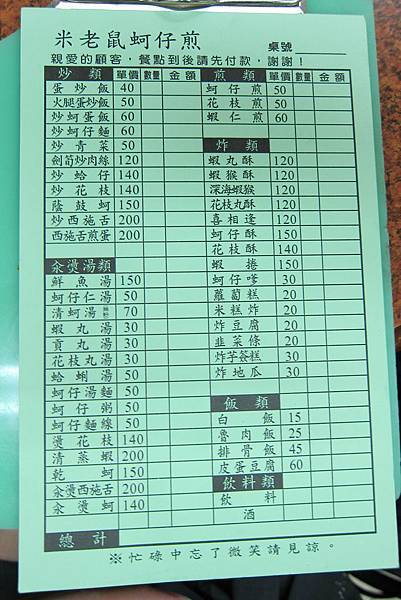 米老鼠蚵仔煎
桌號
親愛的顧客，餐點到後請先付款，謝謝！
炒類 單價 數量 金額
蛋炒飯 40
火腿蛋炒飯 50
炒蚵蛋飯 60
炒蚵仔麵 60
炒青菜 50
劍筍炒肉絲 120
炒蛤仔 140
炒花枝 140
蔭鼓蚵 150
炒西施舌 200
西施舌煎蛋 200
汆燙湯類
鮮魚湯 150
蚵仔仁湯 50
清蚵湯 70
蝦丸湯 30
貢丸湯 30
花枝丸湯 30
蛤蜊湯 50
蚵仔湯麵 50
蚵仔粥 50
蚵仔麵線 50
燙花枝 140
清蒸蝦 200
乾蚵 150
汆燙西施舌 200
汆燙蚵 140
總計
煎類 單價 數量 金額
蚵仔煎 50
花枝煎 50
蝦仁煎 60
炸類
蝦丸酥 120
蝦猴酥 120
深海蝦猴 120
花枝丸酥 120
喜相逢 120
蚵仔酥 150
花枝酥 140
蝦捲 150
蚵仔嗲 30
蘿蔔糕 20
米糕炸 20
炸豆腐 30
韭菜條 20
炸芋簽糕 30
炸地瓜 30
飯類
白飯 15
魯肉飯 25
排骨飯 45
皮蛋豆腐 60
飲料類
飲料
酒
※忙碌中忘了微笑請見諒。